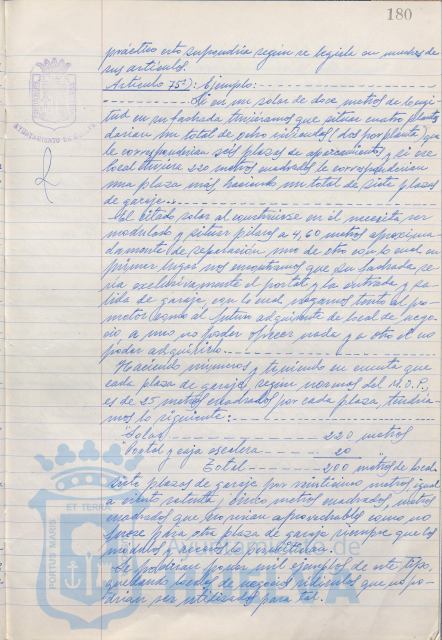 180
práctico esto supondría según se legisla en muchos de
sus artículos.
Artículo 75º): Ejemplo:
Si en un solar de doce metros de longi
tud en su fachada tuvieramos que situar cuatro plantas
darían un total de ocho viviendas (dos por planta) que
le corresponderían seis plazas de aparcamiento y si ese
local tuviera 220 metros cuadrados le corresponderían
una plaza más haciendo un total de siete plazas
de garaje.
El citado solar al construirse en él necesita ser
modulado y situar pilares a 4,60 metros aproxima
damente de separación uno de otro con lo cual en
primer lugar nos encontramos que su fachada se
ría exclusivamente el portal y la entrada y sa
lida de garaje con lo cual negamos tanto al pro
motor como al futuro adquirente de local de nego
cio a uno no poder ofrecer nada y a otro el no
poder adquirirlo.
Haciendo números y teniendo en cuenta que
cada plaza de garaje, según normas del M.O.P.,
es de 25 metros cuadrados por cada plaza, tendría
mos lo siguiente:
Solar 220 metros
Portal y caja escalera 20
Total 200 metros de local
Siete plazas de garaje por veinticinco metros igual
a ciento setenta y cinco metros cuadrados, metros
cuadrados que no serían aprovechables como no
fuese para otra plaza de garaje siempre que los
módulos y accesos lo permitieran.
Se podrían poner mil ejemplos de este tipo,
quedando locales de negocios ridículos que no po
drían ser utilizados para tal.
AYUNTAMIENTO DE HUELVA
PORTUS MARIS ET TERRAE
Ayuntamiento de
HUELVA